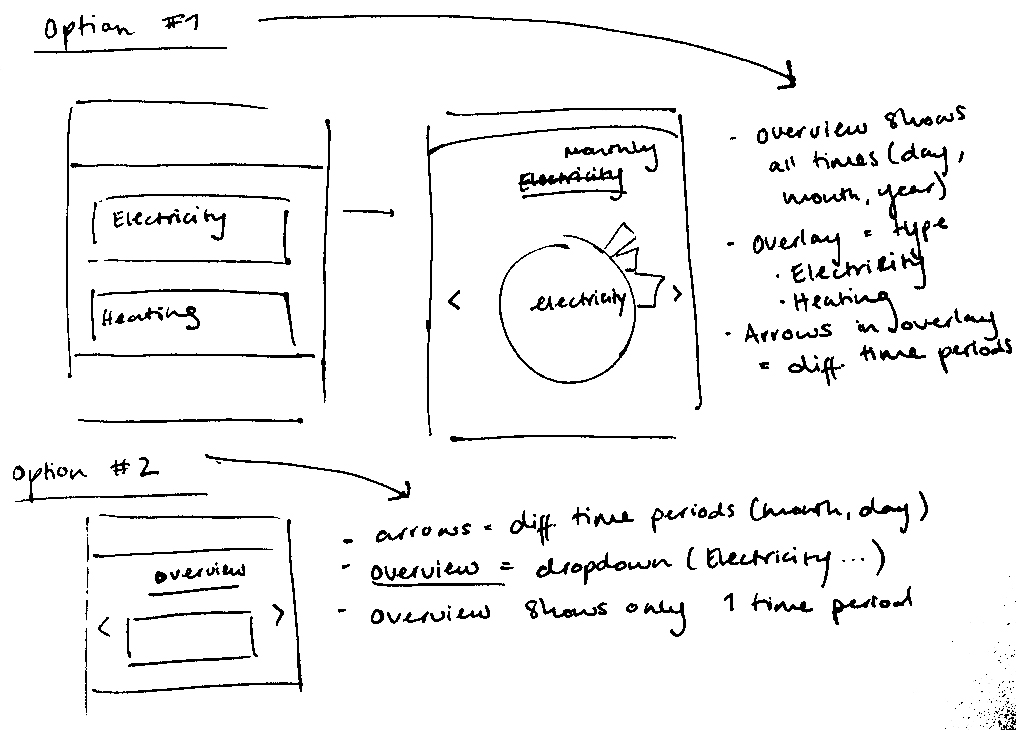 Option #1
Electricity
Heating
monthly
Electricity
< electricity >
- overview shows
all times (day,
month, year)
- Overlay = type
· Electricity
· Heating
- Arrows in overlay
= diff. time periods
Option #2
overview
< >
- arrows = diff. time periods (month, day)
- overview = dropdown (Electricity...)
- overview shows only 1 time period